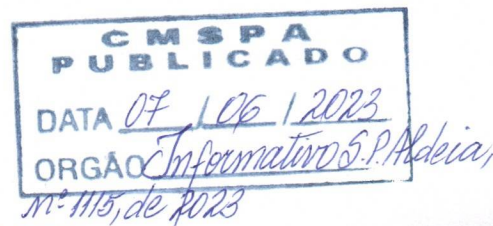 CMSPA
PUBLICADO
DATA 07 / 06 / 2023
ORGÃO Informativo S.P. Aldeia,
Nº 1115, de 2023